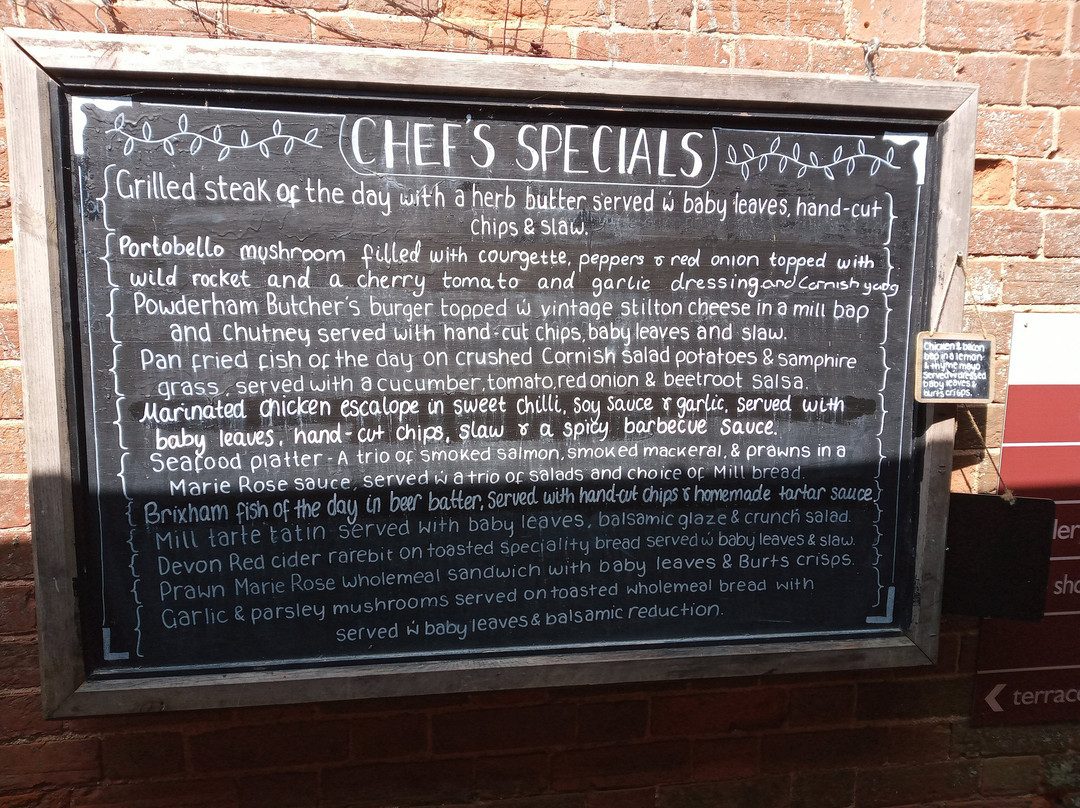 CHEF'S SPECIALS
Grilled steak of the day with a herb butter served ẇ baby leaves, hand-cut
chips & slaw.
Portobello mushroom filled with courgette, peppers & red onion topped with
wild rocket and a cherry tomato and garlic dressing and Cornish yarg
Powderham Butcher's burger topped ẇ vintage stilton cheese in a mill bap
and Chutney served with hand-cut chips, baby leaves and slaw.
Pan fried fish of the day on crushed Cornish salad potatoes & samphire
grass, served with a cucumber, tomato, red onion & beetroot salsa.
Marinated chicken escalope in sweet chilli, soy sauce & garlic, served with
baby leaves, hand-cut chips, slaw & a spicy barbecue sauce.
Seafood platter - A trio of smoked salmon, smoked mackeral, & prawns in a
Marie Rose sauce, served ẇ a trio of salads and choice of Mill bread.
Brixham fish of the day in beer batter, served with hand-cut chips & homemade tartar sauce.
Mill tarte tatin served with baby leaves, balsamic glaze & crunch salad.
Devon Red cider rarebit on toasted speciality bread served ẇ baby leaves & slaw.
Prawn Marie Rose wholemeal sandwich with baby leaves & Burts crisps.
Garlic & parsley mushrooms served on toasted wholemeal bread with
served ẇ baby leaves & balsamic reduction.
Chicken & bacon
bap in a lemon
& thyme mayo
Served ẇ dressed
baby leaves &
burts crisps.